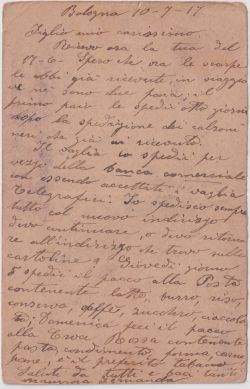 Bologna 10-7-17.
Figlio mio carissimo.
Ricevo ora la tua del
17-6- Spero che ora le scarpe
le abbi già ricevute, in viaggio
ve ne sono due paia, il
primo paio le spedii otto giorni
dopo la spedizione dei calzoni
neri che già ricevuti.
Il vaglia lo spedii per
mezzo della banca commerciale
non essendo accettati i vaglia
telegrafici. Io spedisco sempre
tutto col nuovo indirizzo
devo continuare, o devo ritorna
re all'indirizzo che trovo nelle
cartoline? Giovedì giorno
5 spedii il pacco alla Posta
contenente latte, burro, riso,
conserva, caffè, zucchero, cioccola
to; Domenica feci il pacco
alla Croce Rossa contenente
pasta, condimento, forma, carne
pane,
Saluti da tutti e baci tanti
mamma Fernanda